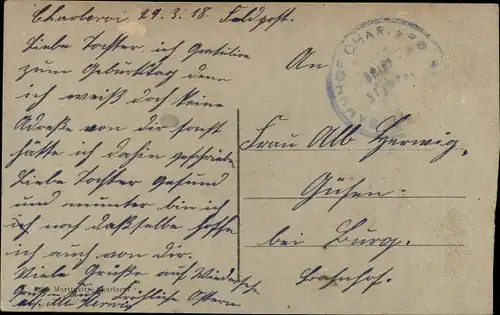 Charleroi 29.3.18. Feldpost.
Liebe Tochter, ich Gratuliere
zum Geburtstag denn
ich weiß doch keine
Adreße von dir sonst
hätte ich dahin geschrieben
Liebe Tochter Gesund
und munter bin ich
ich noch daßselbe hoffe
ich auch von dir.
Viele Grüße auf Wiedersehn
Fröhliche Ostern
An
Frau Alb Herwig,
Güsen.
bei Burg.
Bahnhof.